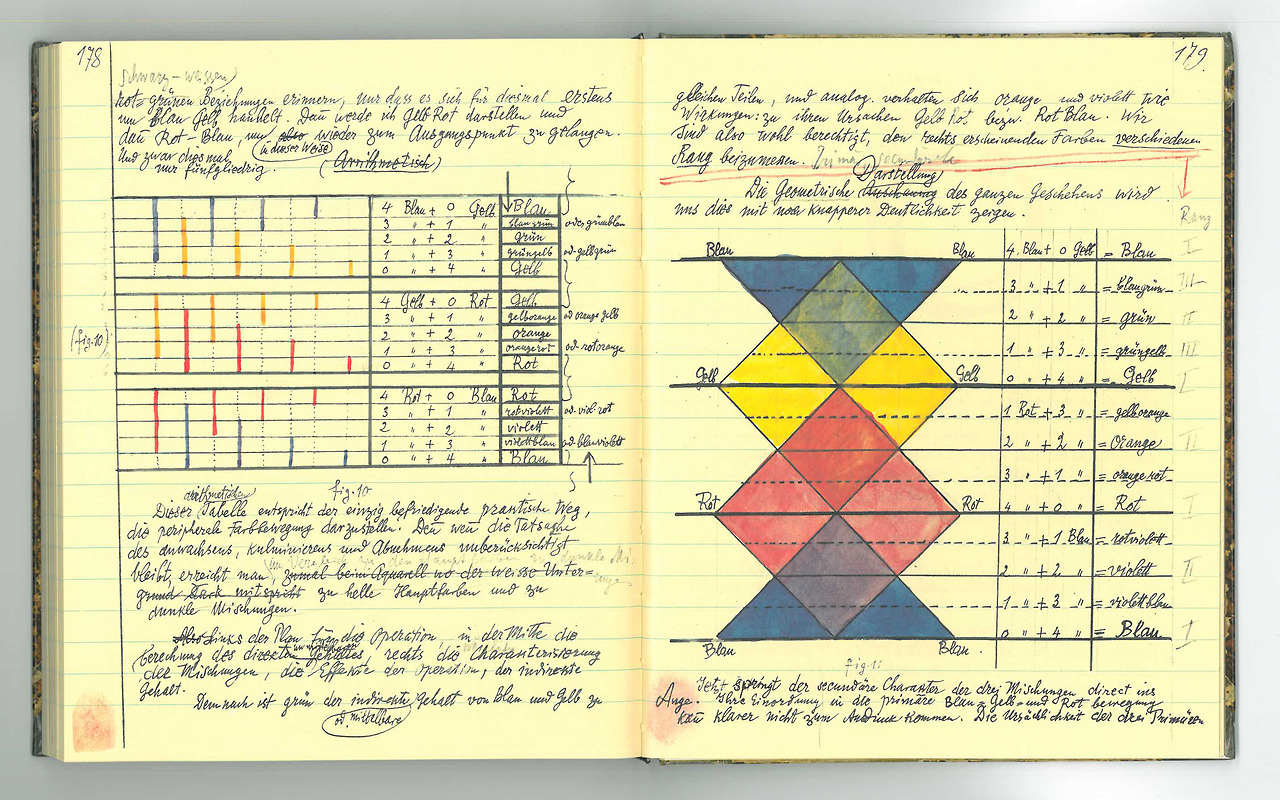 178
schwarz-weissen)
rot-grünen Beziehungen erinnern, nur dass es sich für diesmal erstens
um Blau Gelb handelt. Dann werde ich Gelb Rot darstellen und
dann Rot-Blau, um also wieder zum Ausgangspunkt zu gelangen.
(in dieser Weise)
Und zwar diesmal
nur fünfgliedrig.
(Arrithmetisch)
4 Blau + 0 Gelb Blau
3 " + 1 " blaugrün oder grünblau
2 " + 2 " grün
1 " + 3 " grüngelb od. gelbgrün
0 " + 4 " Gelb
(fig. 10)
4 Gelb + 0 Rot Gelb
3 " + 1 " gelborange od orange gelb
2 " + 2 " orange
1 " + 3 " orangerot od. rotorange
0 " + 4 " Rot
4 Rot + 0 Blau Rot
3 " + 1 " rotviolett od. viol. rot
2 " + 2 " violett
1 " + 3 " violettblau od. blauviolett
0 " + 4 " Blau
fig. 10
arithmetische
Dieser Tabelle entspricht der einzig befriedigende practische Weg,
die periphere Farbbewegung darzustellen. Den wen die Tatsache
des Anwachsens, kulminierens und Abnehmens unberücksichtigt
bleibt, erreicht man, zumal beim Aquarell wo der weisse Unter=
grund stark mitspricht zu helle Hauptfarben und zu
dunkle Mischungen.
Also Links der Plan für die Operation, in der Mitte die
berechnung des direkten Gehaltes, rechts die Charakterisierung
der Mischungen, die Effekte der Operation, der indirekte
Gehalt.
Demnach ist grün der indirekte Gehalt von blau und Gelb zu
(od. mittelbare)
179.
gleichen Teilen, und analog. verhalten sich orange und violett wie
Wirkungen: zu ihren Ursachen Gelb Rot bezw. Rot Blau. Wir
sind also wohl berechtigt, den rechts erscheinenden Farben verschiedenen
Rang beizumessen.
Darstellung
Die Geometrische des ganzen Geschehens wird
uns dies mit noch knapperer Deutlichkeit zeigen.
Rang
Blau Blau 4 Blau + 0 Gelb = Blau I
3 " + 1 " = blaugrün III
2 " + 2 " = grün II
1 " + 3 " = grüngelb III
Gelb Gelb 0 " + 4 " = Gelb I
1 Rot + 3 " = gelborange
2 " + 2 " = Orange II
3 " + 1 " = orangerot
Rot Rot 4 " + 0 " = Rot I
3 " + 1 Blau = rotviolett
2 " + 2 " = violett II
1 " + 3 " = violettblau
0 " + 4 " = Blau I
Blau Blau.
fig. 11
Jetzt springt der secundäre Character der drei Mischungen direct ins
Auge. Ihre Einordnung in die primäre Blau= Gelb= und Rot bewegung
kan klarer nicht zum Ausdruck kommen. Die Ursächlichkeit der drei Primären